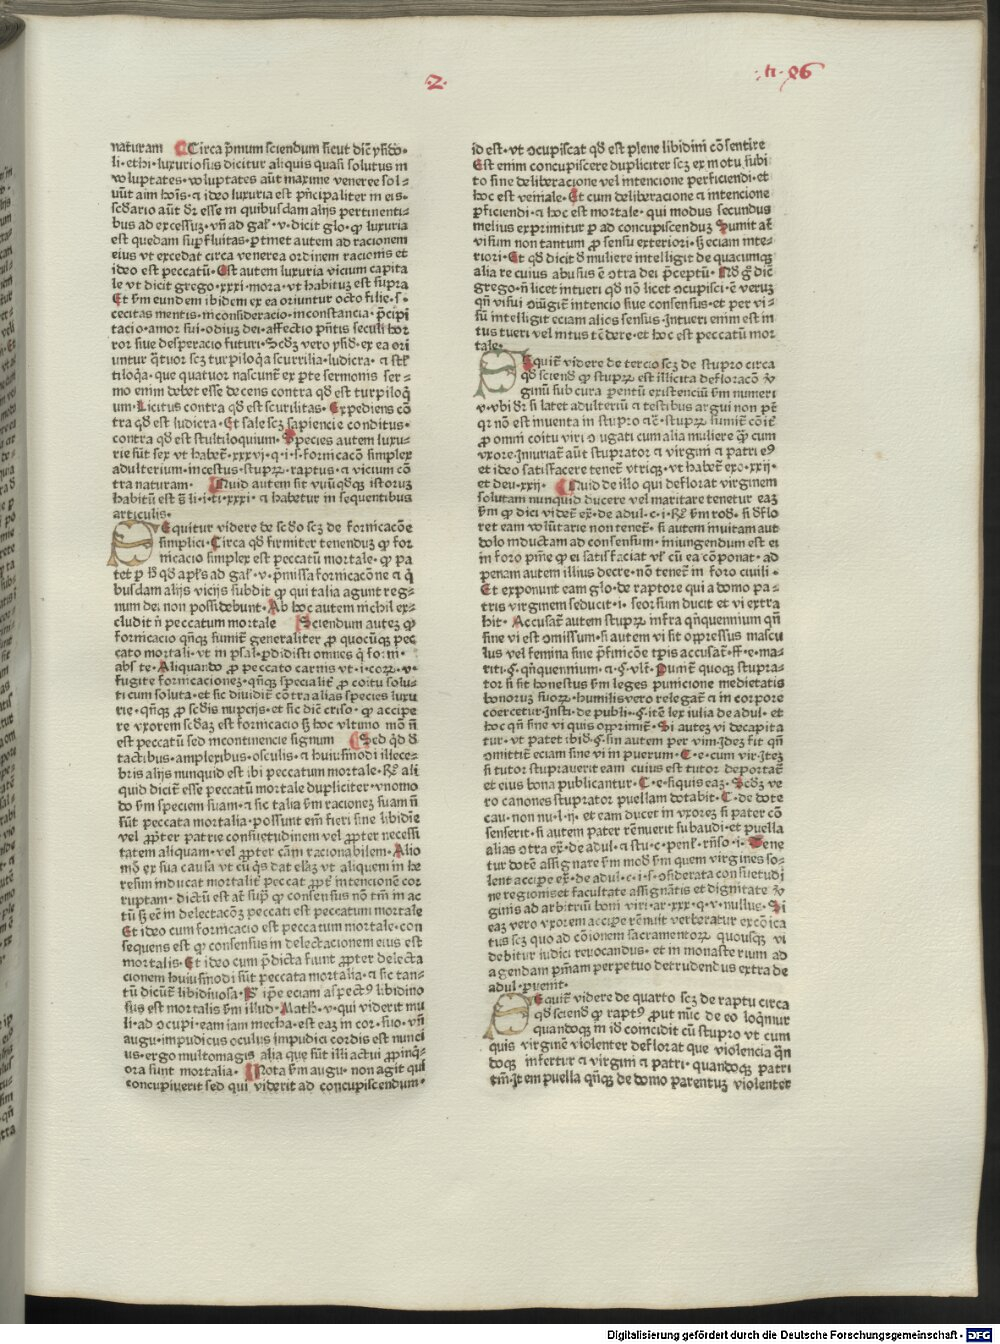 .2.
.h. 96
naturam Circa p̄mum sciendum sicut dic̄ ysido-
li·ethi·luxuriosus dicitur aliquis quasi solutus in
voluptates·voluptates aūt maxime veneree sol-
uūt aīm hoīs·⁊ ideo luxuria est p̄ncipaliter in eis·
scdario aūt dr̄ esse in quibusdam alijs pertinenti-
bus ad excessuȝ·vn̄ ad gal̄·v·dicit glo·ꝙ luxuria
est quedam supfluitas·ptinet autem ad racionem
eius vt excedat circa venerea ordinem racionis et
ideo est peccatū·Est autem luxuria vicium capita
le vt dicit grego·xxxi·mora·vt habitus est supra
Et s̄m eundem ibidem ex ea oriuntur octo filie·s·
cecitas mentis·inconsideracio·inconstancia·p̄cipi
tacio·amor sui·odiuȝ dei·affectio p̄ntis seculi hor
ror siue desperacio futuri·Scd̄ȝ vero ysid̄·ex ea ori
untur q̄tuor scȝ turpiloq̄a scurrilia·ludicra·⁊ stl̄
tiloq̄a·que quatuor nascunt̄ ex p̄te sermonis ser-
mo enim debet esse decens contra qd̄ est turpiloq̄
um·Licitus contra qd̄ est scurilitas·Expediens cō
tra qd̄ est ludicra·Et sale scȝ sapiencie conditus·
contra qd̄ est stultiloquium·Species autem luxu-
rie sūt sex vt habet̄·xxxvi·q·i·s·fornicacō simplex
adulterium·incestus·stupꝝ·raptus·⁊ vicium cō
tra naturam· Quid autem sit vnūqd̄qȝ istoruȝ
habitū est s̄ li·i·ti·xxxi·⁊ habetur in sequentibus
articulis·
Sequitur videre de scd̄o scȝ de fornicacōe
simplici·Circa qd̄ firmiter tenenduȝ ꝙ for
nicacio simplex est peccatū mortale·ꝙ pa
tet p hͦ qd̄ apl̄s ad gal̄·v·p̄missa fornicacōne ⁊ q̄
busdam alijs vicijs subdit ꝙ qui talia agunt reg-
num dei non possidebunt·Ab hoc autem nichil ex-
cludit n̄ peccatum mortale Sciendum auteȝ ꝙ
fornicacio qn̄qȝ sumit̄ generaliter p quocūqȝ pec
cato mortali·vt in psal·pdidisti omnes q̄ forni·
abs te·Aliquando p peccato carnis vt·i·corꝝ·v·
fugite fornicacioneȝ·qn̄qȝ specialit̄ p coitu solu-
ti cum soluta·et sic diuidit̄ cōtra alias species luxu
rie·qn̄qȝ p scdīs nupcijs·et sic dic̄ criso·ꝙ accipe
re vxorem scdaȝ est fornicacio sȝ hoc vltimo mō n̄
est peccatū sed incontinencie signum Sed qd̄ d̄
tactibus·amplexibus·osculis·⁊ huiusmodi illece-
bris alijs nunquid est ibi peccatum mortale·Rn̄ ali
quid dicit̄ esse peccatū mortale dupliciter·vnomo
do s̄m speciem suam·⁊ sic talia s̄m racioneȝ suam n̄
sūt peccata mortalia·possunt em̄ fieri sine libidīe
vel ꝓpter patrie consuetudinem vel ꝓpter necessi
tatem aliquam·vel ꝓpter cām racionabilem·Alio
mō ex sua causa vt cū q̄s dat elāȝ vt aliquem in he
resim inducat mortalit̄ peccat ꝓpt̄ intencionē cor
ruptam·dictū est at̄ sup̄ ꝙ consensus nō tm̄ in ac
tū sȝ ecīn delectacōȝ peccati est peccatum mortale
Et ideo cum fornicacio est peccatum mortale·con
sequens est ꝙ consensus in delectacionem eius est
mortalis·Et ideo cum p̄dicta fiunt ꝓpter delecta
cionem huiusmodi sūt peccata mortalia·⁊ sic tan-
tū dicūt̄ libidinosa·Et ip̄e eciam aspectꝰ libidino
sus est mortalis s̄m illud·Math·v·qui viderit mu
li·ad ocupi·eam iam mecha·est eaȝ in cor·suo·vn̄
augu·impudicus oculus impudici cordis est nunci
us·ergo multomagis alia que sūt illi actui ꝓpinq̄-
ora sunt mortalia· Nota s̄m augu·non agit qui
concupiuerit sed qui viderit ad concupiscendum·
id est·vt ocupiscat qd̄ est plene libidini cōsentire
Est enim concupiscere dupliciter scȝ ex motu subi
to sine deliberacione vel intencione perficiendi·et
hoc est veniale·Et cum deliberacione ⁊ intencione
pficiendi·⁊ hoc est mortale·qui modus secundus
melius exprimitur p ad concupiscenduȝ Sumit at̄
visum non tantum p sensu exteriori·sȝ eciam inte-
riori·Et qd̄ dicit d̄ muliere intelligit de quacumqȝ
alia re cuius abusus ē otra dei p̄ceptū·Nō g̊ dic̄
grego·n̄ licet intueri qd̄ nō licet ocupisci·ē veruȝ
qn̄ visui oiūgit̄ intencio siue consensus·et per vi-
sū intelligit eciam alios sensus·Intueri enim est in
tus tueri vel intus tēdere·et hoc est peccatū mor
tale·
Sequit̄ videre de tercio scȝ de stupro circa
qd̄ sciend̄ ꝙ stupꝝ est illicita defloracō v̄
ginū sub cura p̄entū existenciū s̄m numeri
v·vbi dr̄ si latet adulteriū ⁊ testibus argui non pt̄
qr nō est inuenta in stupro ⁊c̄·stupꝝ sumit̄ cōit̄
p omni coitu viri ougati cum alia muliere q̄ cum
vxore·Iniuriat̄ aūt stuprator ⁊ virgini ⁊ patri eꝰ
et ideo satisfacere tenet̄ vtriqȝ·vt habet̄ exo·xxij·
et deu·xxij· Quid de illo qui deflorat virginem
solutam nunquid ducere vel maritare tenetur eaȝ
s̄m ꝙ dici videt̄ ex̄·de adul·c·i·Rn̄ s̄m rod̄·si dflo
ret eam volūtarie non tenet̄·si autem inuitam aut
dolo inductam ad consensum·iniungendum est ei
in foro pn̄ie ꝙ ei satisfaciat vl̄ cū ea cōponat·ad
penam autem illius decre·nō tenet̄ in foro ciuili·
Et exponunt eam glo·de raptore qui a domo pa-
tris virginem seducit·i·seorsum ducit et vi extra
hit·Accusat̄ autem stuprum infra qn̄quennium qn̄
sine vi est omissum·si autem vi sit oppressus mascu
lus vel femina sine p̄finicōe tp̄is accusat̄·ff·e·ma-
riti·ꝭ·qn̄quennium·⁊·ꝭ·vlt̄·Punit̄ quoqȝ stupra-
tor si sit honestus s̄m leges punicione medietatis
bonoruȝ suoꝝ·humilis vero relegat̄·⁊ in corpore
coercetur·Insti·de publi·ꝭ·itē lex iulia de adul·et
hoc qn̄ sine vi quis opprimit̄·Si auteȝ vi decapita
tur·vt patet ibid̄·ꝭ·sin autem per vim·Ideȝ fit qn̄
omittit̄ eciam sine vi in puerum·C·e·cum vir·Iteȝ
si tutor stuprauerit eam cuius est tutor deportat̄
et eius bona publicantur·C·e·si quis eaȝ·Scdȝ ve
ro canones stuprator puellam dotabit·C·de dote
cau·non nu·l·ij·et eam ducet in vxoreȝ si pater cō
senserit·si autem pater rēnuerit subaudi·et puella
alias otra ex̄·de adul·⁊ stu·c·penl̄·rn̄so·i·Tene
tur dotē assignare s̄m mod̄ s̄m quem virgines so-
lent accipe ex̄·de adul·c·i·s·osiderata consuetudi
ne regionis et facultate assignātis et dignitate v̄
ginis ad arbitriū boni viri·ar·xxx·q·v·nullus·Si
eaȝ vero vxorem accipe rēnuit verberatur excōica
tus scȝ quo ad cōionem sacramentoꝝ quousqȝ vi
debitur iudici reuocandus·et in monasterium ad
agendam pn̄iam perpetuo detrudendus extra de
adul·puenit·
Sequit̄ videre de quarto scȝ de raptu circa
qd̄ sciend̄ ꝙ raptꝰ put nūc de eo loq̄mur
quandoqȝ in id̄ coincidit cū stupro vt cum
quis virginē violenter deflorat que violencia qn̄
doqȝ infertur ⁊ virgini ⁊ patri·quandoqȝ patri
tm̄·Item puella qn̄qȝ de domo parentuȝ violenter
Digitalisierung gefördert durch die Deutsche Forschungsgemeinschaft - DFG